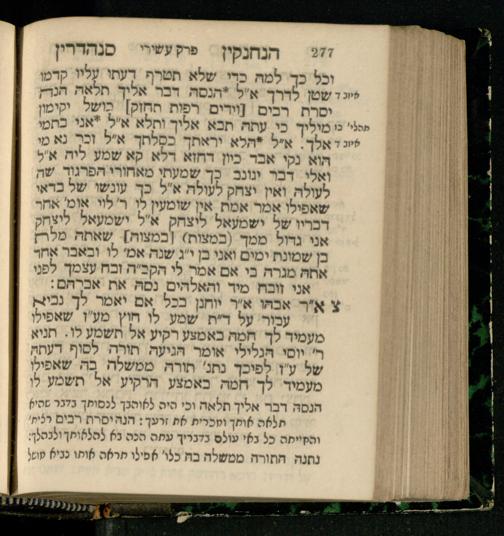 277 הנחנקין פרק עשירי סנהדרין
וכל כך למה כדי שלא תטרף דעתו עליו קדמו
איוב ד שטן לדרך א״ל *הנסה דבר אליך תלאה הנה
יסרת רבים [וידים רפות תחזק] כושל יקימון
תהלי׳ כו מיליך כי עתה תבא אליך ותלא א״ל *אני בתמי
איוב ד אלך. א״ל *הלא יראתך כסלתך א״ל זכר נא מי
הוא נקי אבד כיון דחזא דלא קא שמע ליה א״ל
ואלי דבר יגונב כך שמעתי מאחורי הפרגוד שה
לעולה ואין יצחק לעולה א״ל כך עונשו של בדאי
שאפילו אמר אמת אין שומעין לו ר׳ לוי אומ׳ אחר
דבריו של ישמעאל ליצחק א״ל ישמעאל ליצחק
אני גדול ממך (במצות) [במצוה] שאתה מלת
בן שמונת ימים ואני בן י״ג שנה אמ׳ לו ובאבר אחד
אתה מגרה בי אם אמר לי הקב״ה זבח עצמך לפני
אני זובח מיד והאלהים נסה את אברהם:
צ א״ר אבהו א״ר יוחנן בכל אם יאמר לך נביא
עבור על ד״ת שמע לו חוץ מע״ז שאפילו
מעמיד לך חמה באמצע רקיע אל תשמע לו. תניא
ר׳ יוסי הגלילי אומר הגיעה תורה לסוף דעתה
של ע״ז לפיכך נתנ׳ תורה ממשלה בה שאפילו
מעמיד לך חמה באמצע הרקיע אל תשמע לו
הנסה דבר אליך תלאה וכי היה לאוהבך לנסותך בדבר שהיא
תלאה אותך ומכרית את זרעך: הנה יסרת רבים
והפייתה כל באי עולם בדבריך עתה הנה בא להלאותך ולבהלך:
נתנה התורה ממשלה בה כלו׳ אפילו תראה אותו נביא מושל